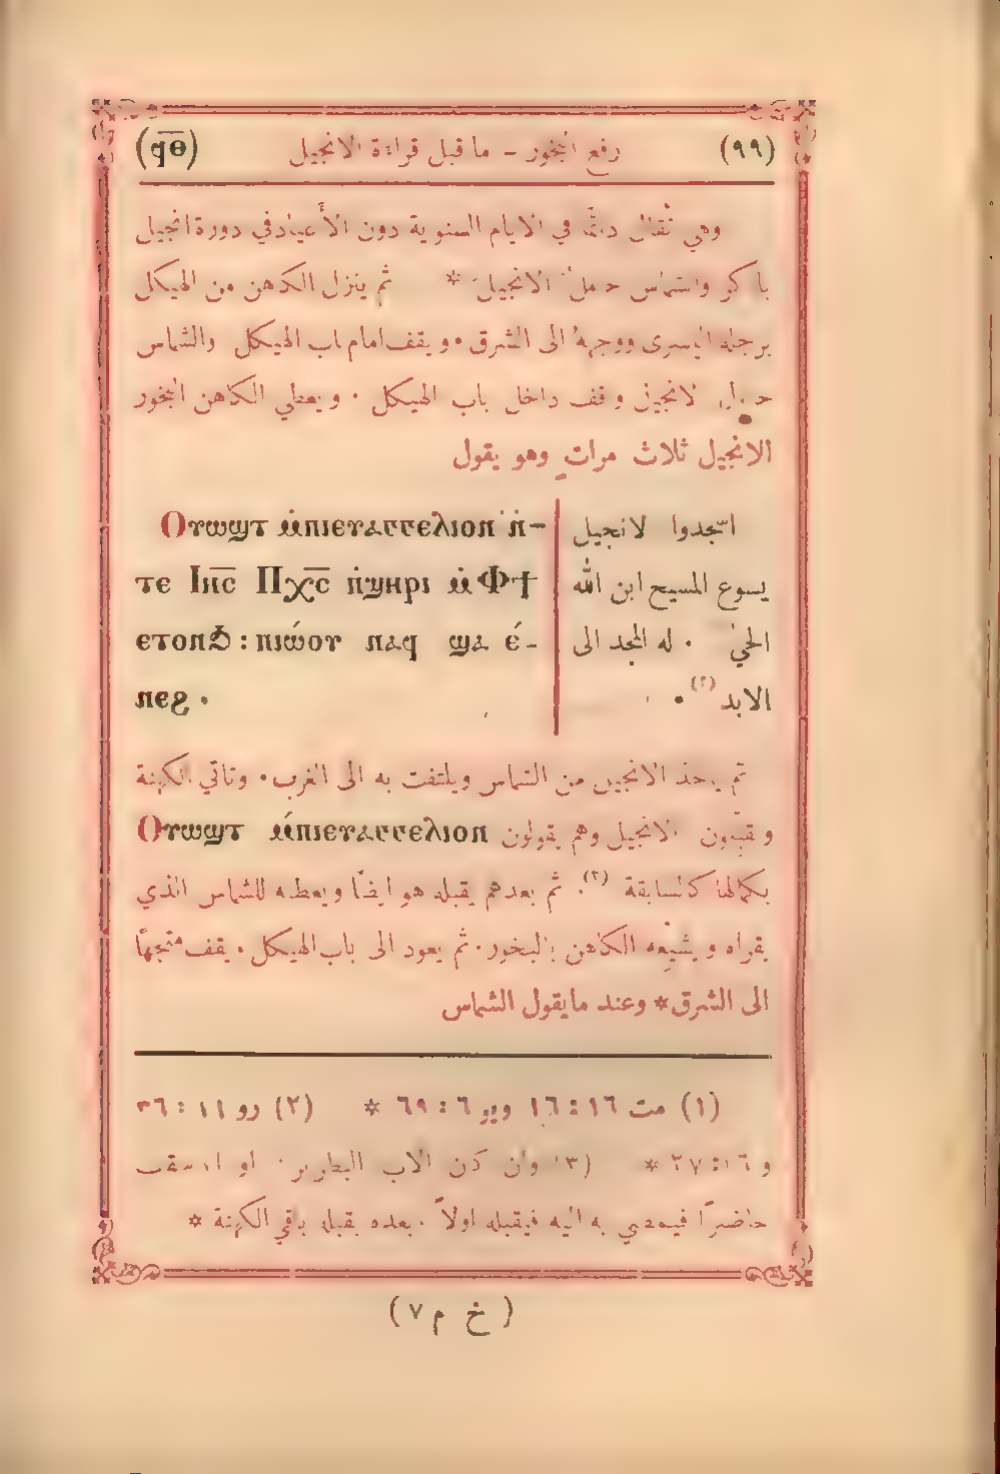 (٩٩) رفع البخور - ما قبل قراءة الانجيل (ϥ̅ⲑ̅)
وهي تُقال دائمًا في الايام السنوية دون الأعياد في دورة انجيل
باكر والشماس حامل الانجيل * ثم ينزل الكاهن من الهيكل
برجله اليسرى ووجههُ الى الشرق · ويقف امام باب الهيكل والشماس
حامل الانجيل واقف داخل باب الهيكل · ويعطي الكاهن البخور
الانجيل ثلاث مراتٍ وهو يقول
Ⲟⲩⲱϣⲧ ⲙ̇ⲡⲓⲉⲩⲁⲅⲅⲉⲗⲓⲟⲛ ⲛ̇-
ⲧⲉ Ⲓⲏ̅ⲥ̅ Ⲡⲭ̅ⲥ̅ ⲛ̇ϣⲏⲣⲓ ⲙ̇Ⲫϯ
ⲉⲧⲟⲛϧ : ⲡⲓⲱ̇ⲟⲩ ⲛⲁϥ ϣⲁ ⲉ̇-
ⲛⲉϩ ·
اسجدوا لانجيل
يسوع المسيح ابن الله
الحيّ · له المجد الى
الابد (٢) ·
ثم ياخذ الانجيل من الشماس ويلتفت به الى الغرب · وتاتي الكهنة
ويقبّلون الانجيل وهم يقولون Ⲟⲩⲱϣⲧ ⲙ̇ⲡⲓⲉⲩⲁⲅⲅⲉⲗⲓⲟⲛ
بكمالها كالسابقة (٣). ثم بعدهم يقبله هو ايضًا ويعطه للشماس الذي
يقراه ويشيّعه الكاهن بالبخور · ثم يعود الى باب الهيكل · يقف متجهًا
الى الشرق * وعند ما يقول الشماس
(١) مت ١٦ : ١٦ ويو ٦ : ٦٩ * (٢) رو ١١ : ٣٦
و ١٦ : ٢٧ * (٣) وان كان الاب البطريرك او الاسقف
حاضرًا فيمضي به اليه فيقبله اولاً · بعده يقبله باقي الكهنة *
( خ م ٧ )